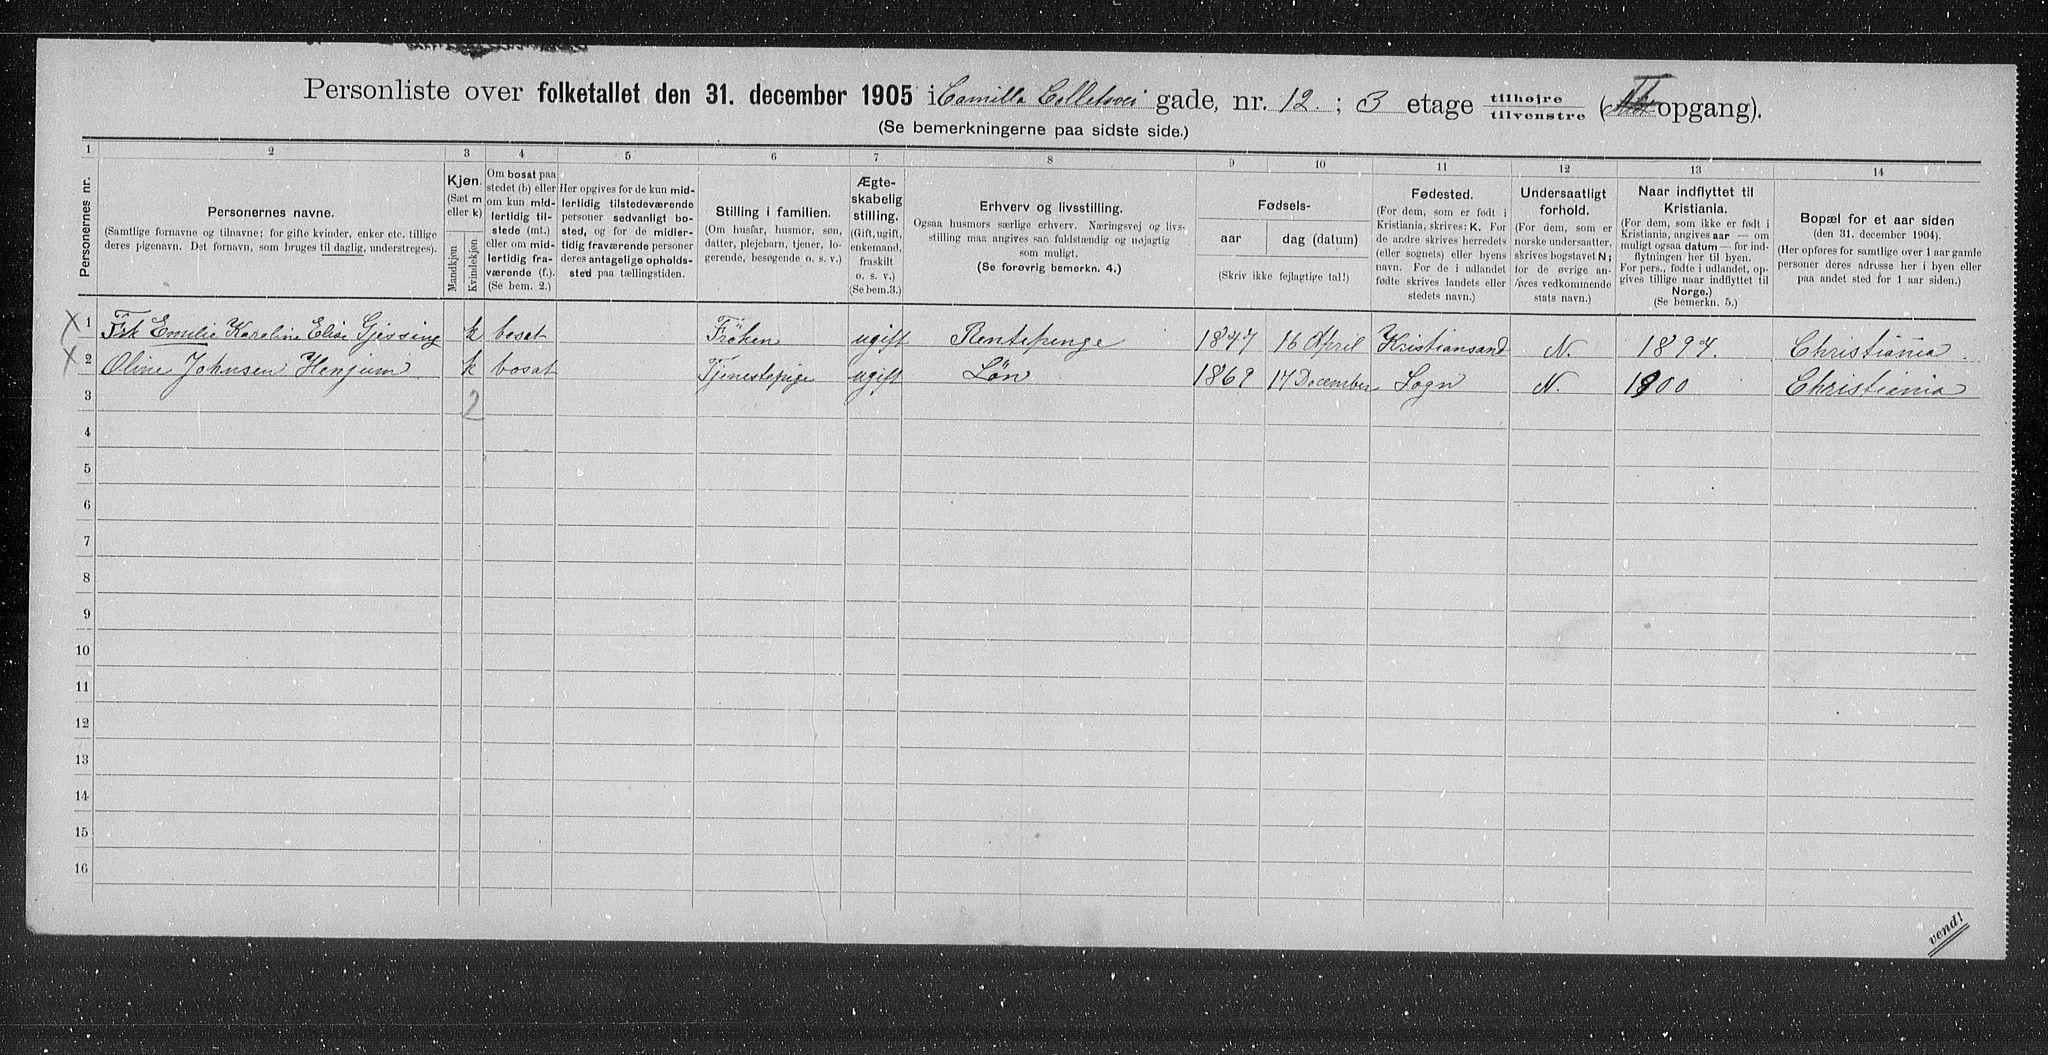 Personliste over folketallet den 31. december 1905 i Camilla Colletsvei gade, nr. 12. ; 3 etage tilhøjre tilvenstre ( opgang).
(Se bemerkningerne paa sidste side.)
1 2 3 4 5 6 7 8 9 10 11 12 13 14
Personernes nr.
Personernes navne.
(Samtlige fornavne og tilnavne; for gifte kvinder, enker etc. tillige
deres pigenavn. Det fornavn, som bruges til daglig, understreges).
Kjøn.
(Sæt m
eller k)
Mandkjøn.
Kvindekjøn.
Om bosat paa
stedet (b) eller
om kun mid-
lertidig til-
stede (mt.)
eller om mid-
lertidig fra-
værende (f.).
(Se bem. 2.)
Her opgives for de kun mid-
lertidig tilstedeværende
personer sedvanligt bo-
sted, og for de midler-
tidig fraværende personer
deres antagelige opholds-
sted paa tællingstiden.
Stilling i familien.
(Om husfar, husmor, søn,
datter, plejebarn, tjener, lo-
gerende, besøgende o. s. v.)
Ægte-
skabelig
stilling.
(Gift, ugift,
enkemand,
fraskilt
o. s. v.)
(Se bem. 3.)
Erhverv og livsstilling.
Ogsaa husmors særlige erhverv. Næringsvej og livs-
stilling maa angives saa fuldstændig og nøjagtig
som muligt.
(Se forøvrig bemerkn. 4.)
Fødsels-
aar
dag (datum)
(Skriv ikke fejlagtige tal!)
Fødested.
(For dem, som er født i
Kristiania, skrives: K. For
de andre skrives herredets
(eller sognets) eller byens
navn. For de i udlandet
fødte skrives landets eller
stedets navn.)
Undersaatligt
forhold.
(For dem, som er
norske undersaatter,
skrives bogstavet N;
for de øvrige an-
føres vedkommende
stats navn.)
Naar indflyttet til
Kristiania.
(For dem, som ikke er født i
Kristiania, angives aar — om
muligt ogsaa datum — for ind-
flytningen her til byen.
For pers., fødte i udlandet, op-
gives tillige naar indflyttet til
Norge.)
(Se bemerkn. 5.)
Bopæl for et aar siden
(den 31. december 1904).
(Her opføres for samtlige over 1 aar gamle
personer deres adresse her i byen eller
paa andet sted for 1 aar siden.)
X 1 Frk Emilie Karoline Elise Gjessing k bosat Frøken ugift Rentepenge 1847 16 April Kristiansand N. 1897. Christiania.
X 2 Oline Johnsen Henjum k bosat Tjenestepige ugift Løn 1869 17 December Sogn N. 1900 Christiania
3 2
4
5
6
7
8
9
10
11
12
13
14
15
16
vend!